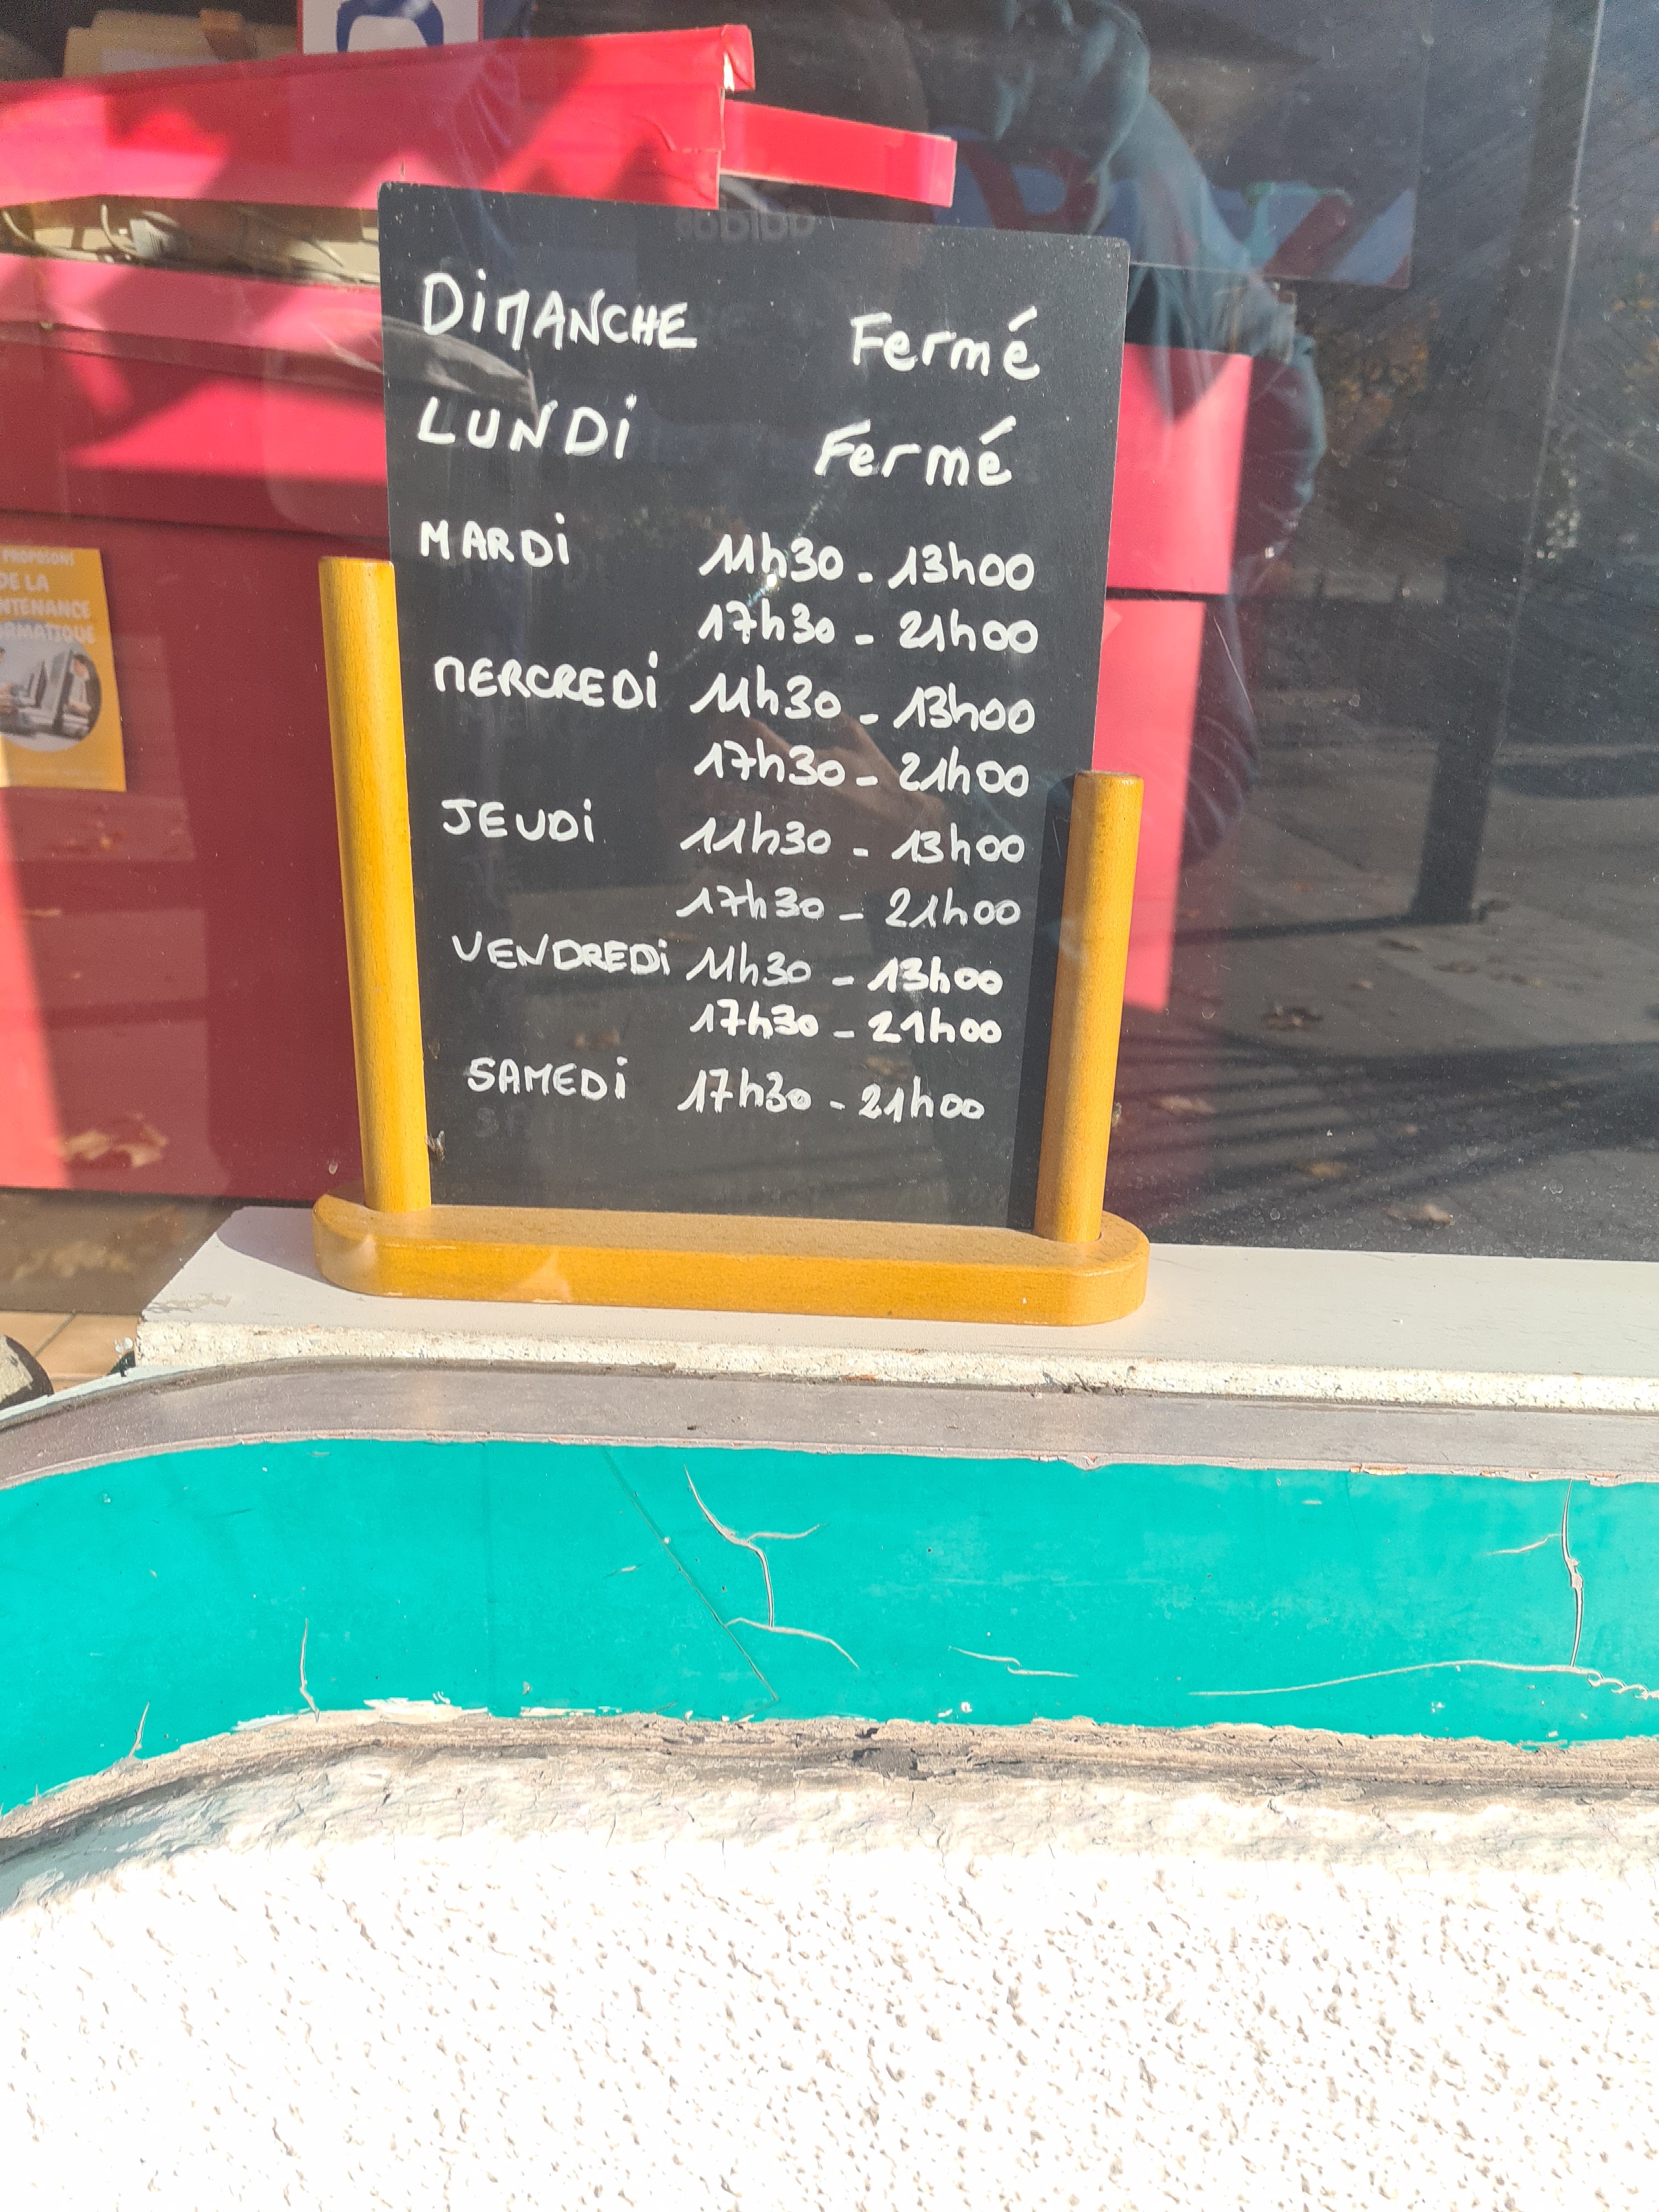 DIMANCHE Fermé
LUNDI Fermé
MARDI 11h30 - 13h00
17h30 - 21h00
MERCREDI 11h30 - 13h00
17h30 - 21h00
JEUDI 11h30 - 13h00
17h30 - 21h00
VENDREDI 11h30 - 13h00
17h30 - 21h00
SAMEDI 17h30 - 21h00
PROPOSONS
DE LA
NTENANCE
RMATIQUE